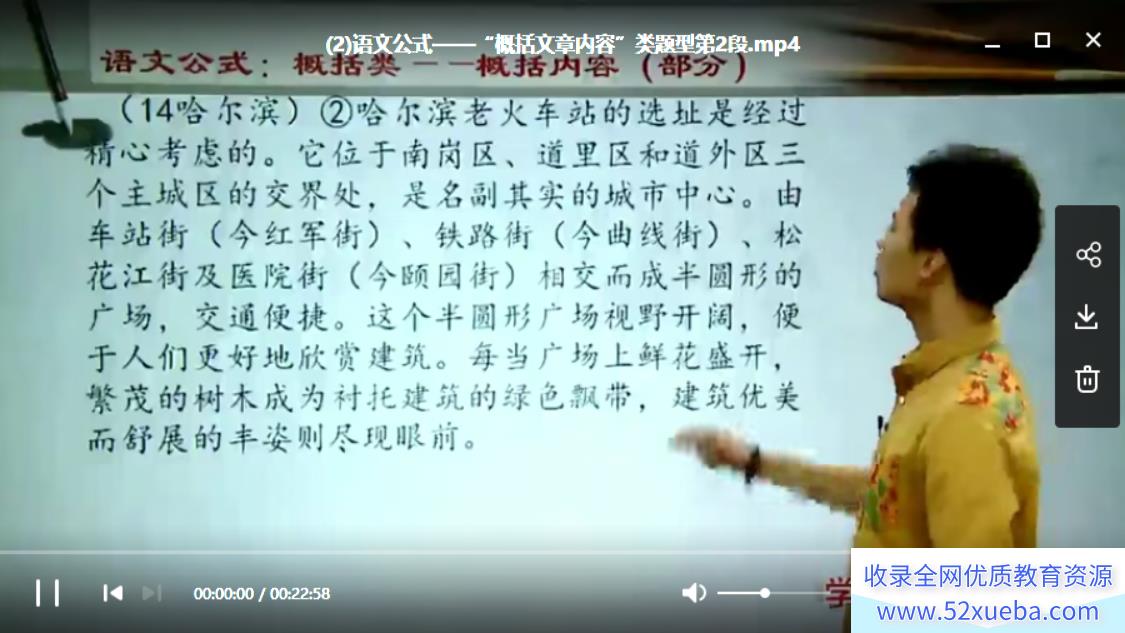 (2)语文公式——“概括文章内容”类题型第2段.mp4
语文公式：概括类——概括内容（部分）
（14哈尔滨）②哈尔滨老火车站的选址是经过
精心考虑的。它位于南岗区、道里区和道外区三
个主城区的交界处，是名副其实的城市中心。由
车站街（今红军街）、铁路街（今曲线街）、松
花江街及医院街（今颐园街）相交而成半圆形的
广场，交通便捷。这个半圆形广场视野开阔，便
于人们更好地欣赏建筑。每当广场上鲜花盛开，
繁茂的树木成为衬托建筑的绿色飘带，建筑优美
而舒展的丰姿则尽现眼前。
00:00:00 / 00:22:58
学
收录全网优质教育资源
www.52xueba.com